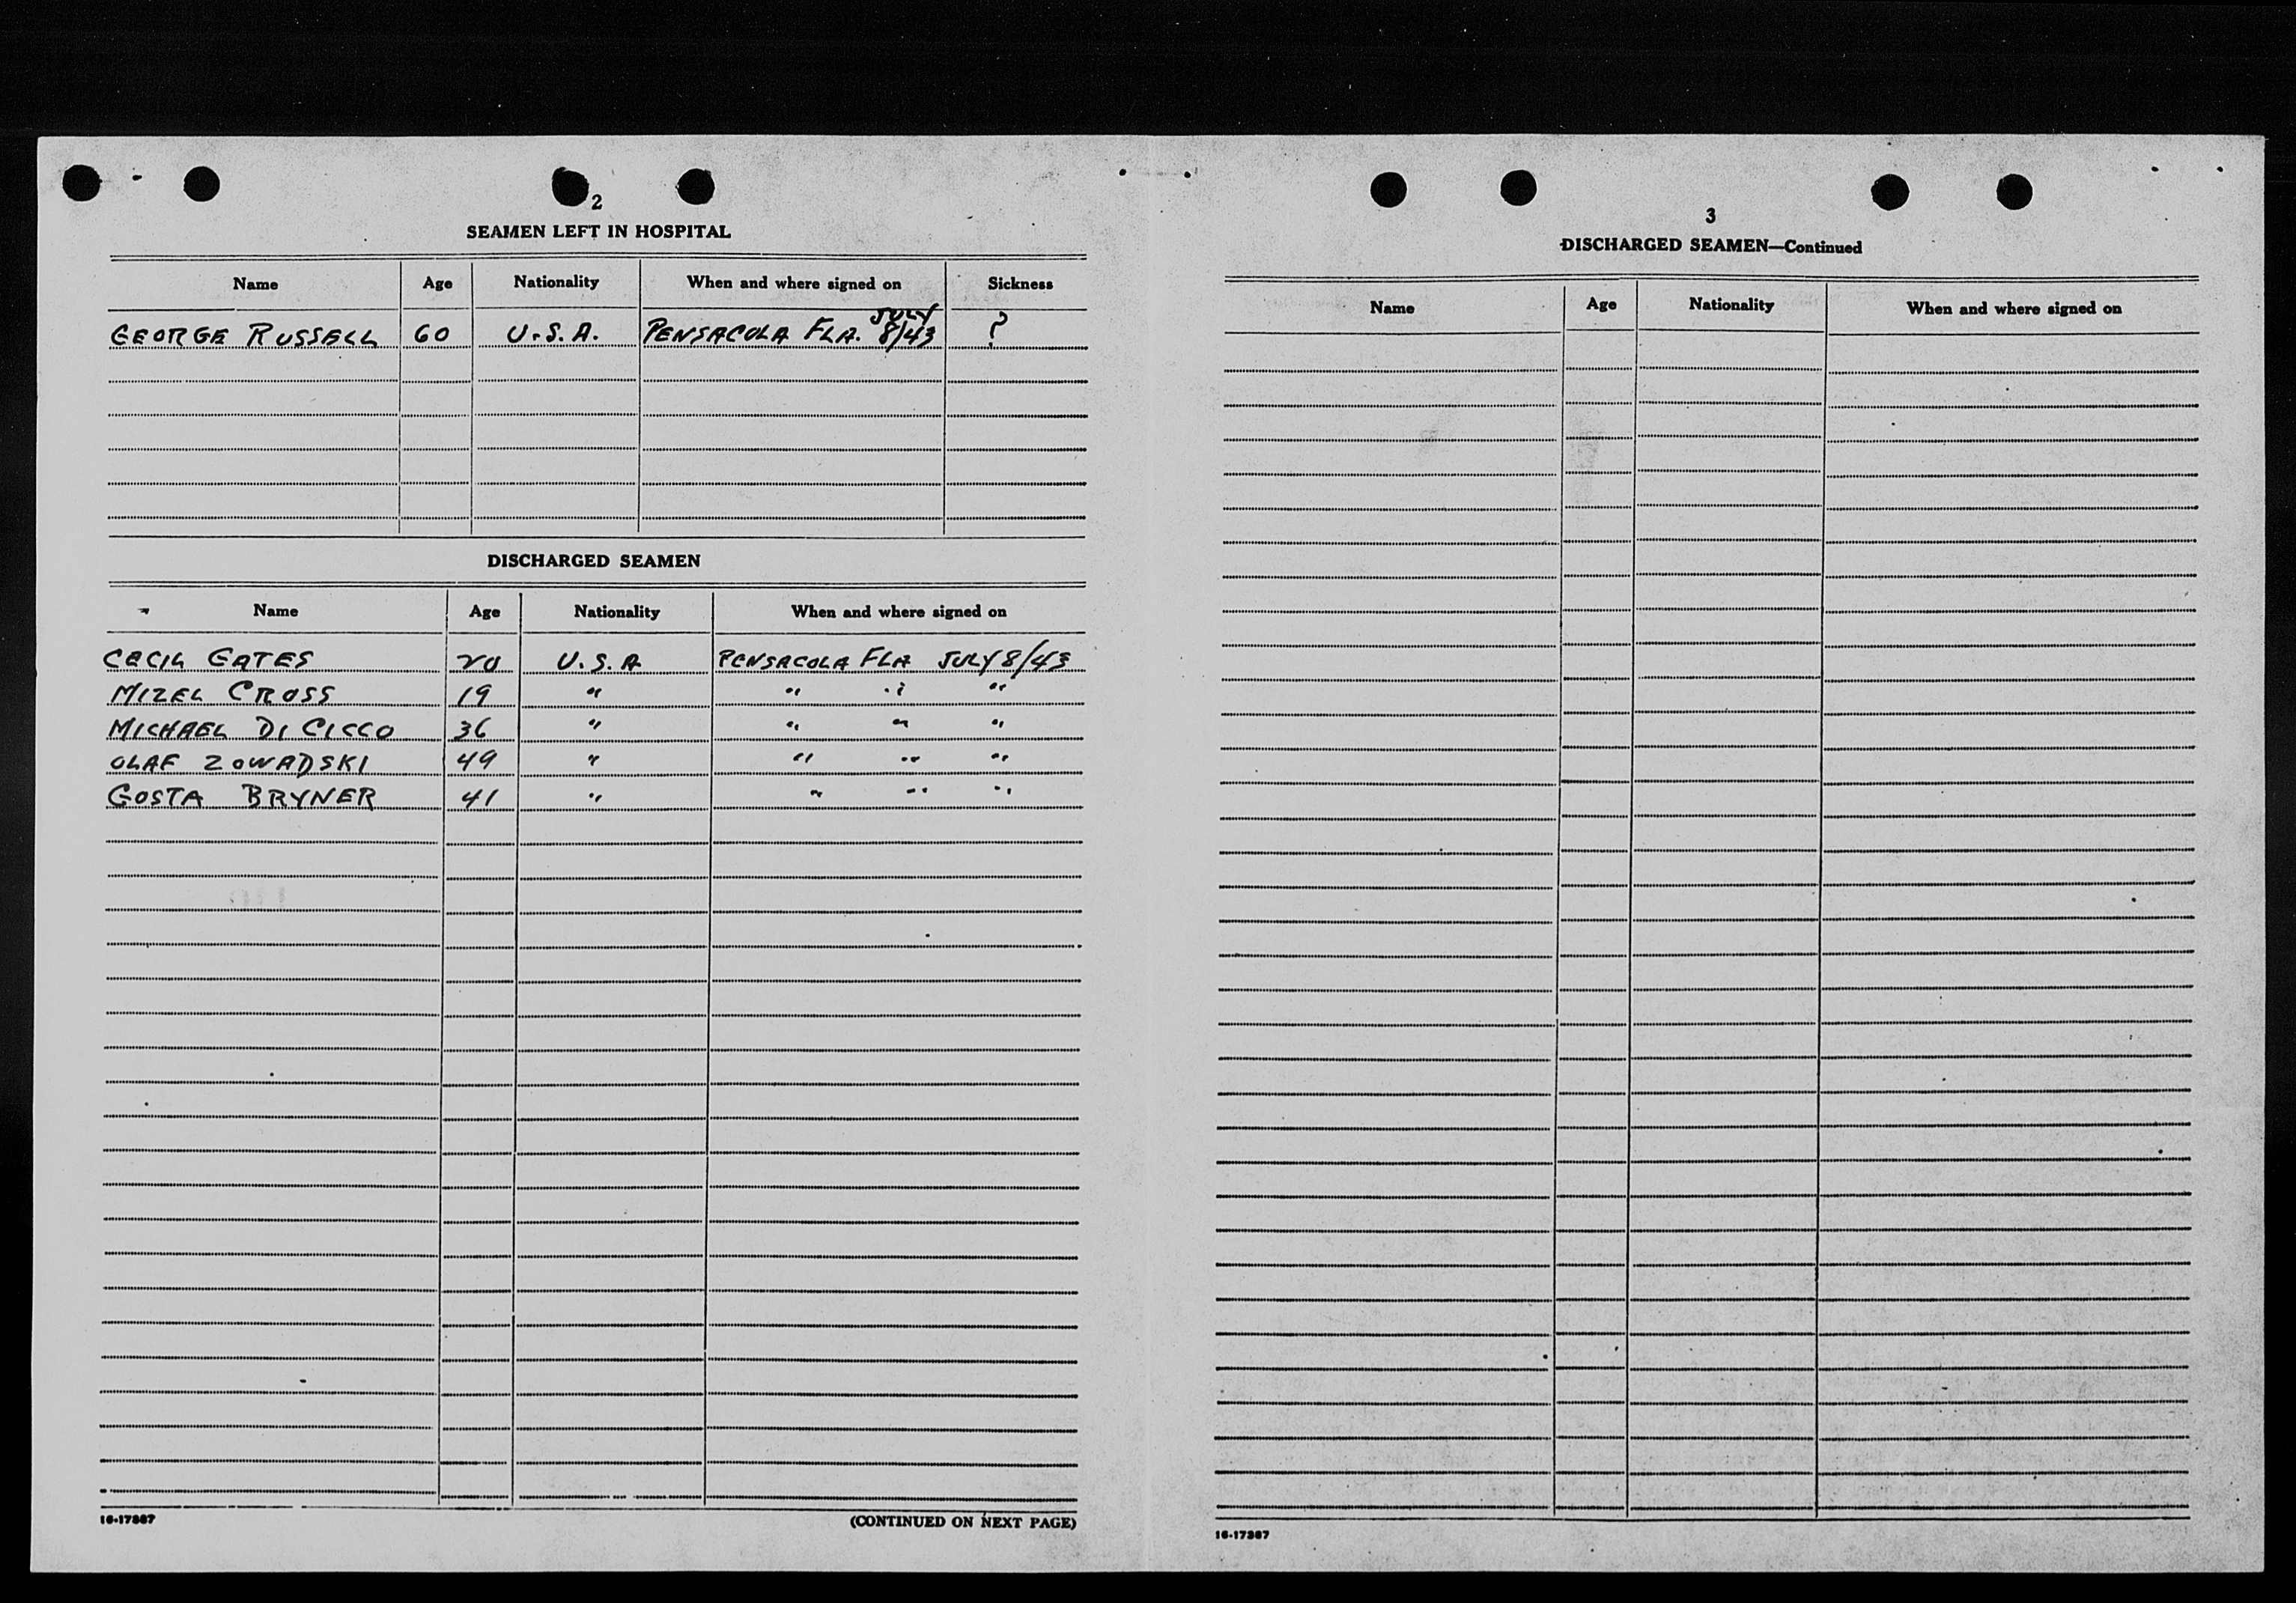 2
SEAMEN LEFT IN HOSPITAL
Name Age Nationality When and where signed on Sickness
GEORGE RUSSELL 60 U.S.A. PENSACOLA FLA. JULY 8/43 ?
DISCHARGED SEAMEN
Name Age Nationality When and where signed on
CECIL GATES 20 U.S.A PENSACOLA FLA JULY 8/43
MIZEL CROSS 19 " " " "
MICHAEL DI CICCO 36 " " " "
OLAF ZOWADSKI 49 " " " "
GOSTA BRYNER 41 " " " "
16-17387
(CONTINUED ON NEXT PAGE)
3
DISCHARGED SEAMEN—Continued
Name Age Nationality When and where signed on
16-17387